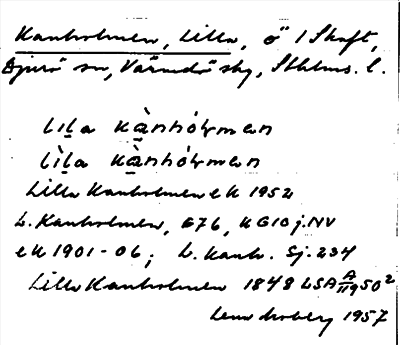 Kanholmen, Lilla, ö i Skaft,
Djurö sn, Värmdö skg, Sthlms. l.
lịla kànhólmen
lìla kànhólmen
Lilla Kanholmen ek 1952
L. Kanholmen, 676, KG10j.NV
ek 1901-06; L. Kanh. Sj. 234
Lilla Kanholmen 1848 LSA A 50²
1957